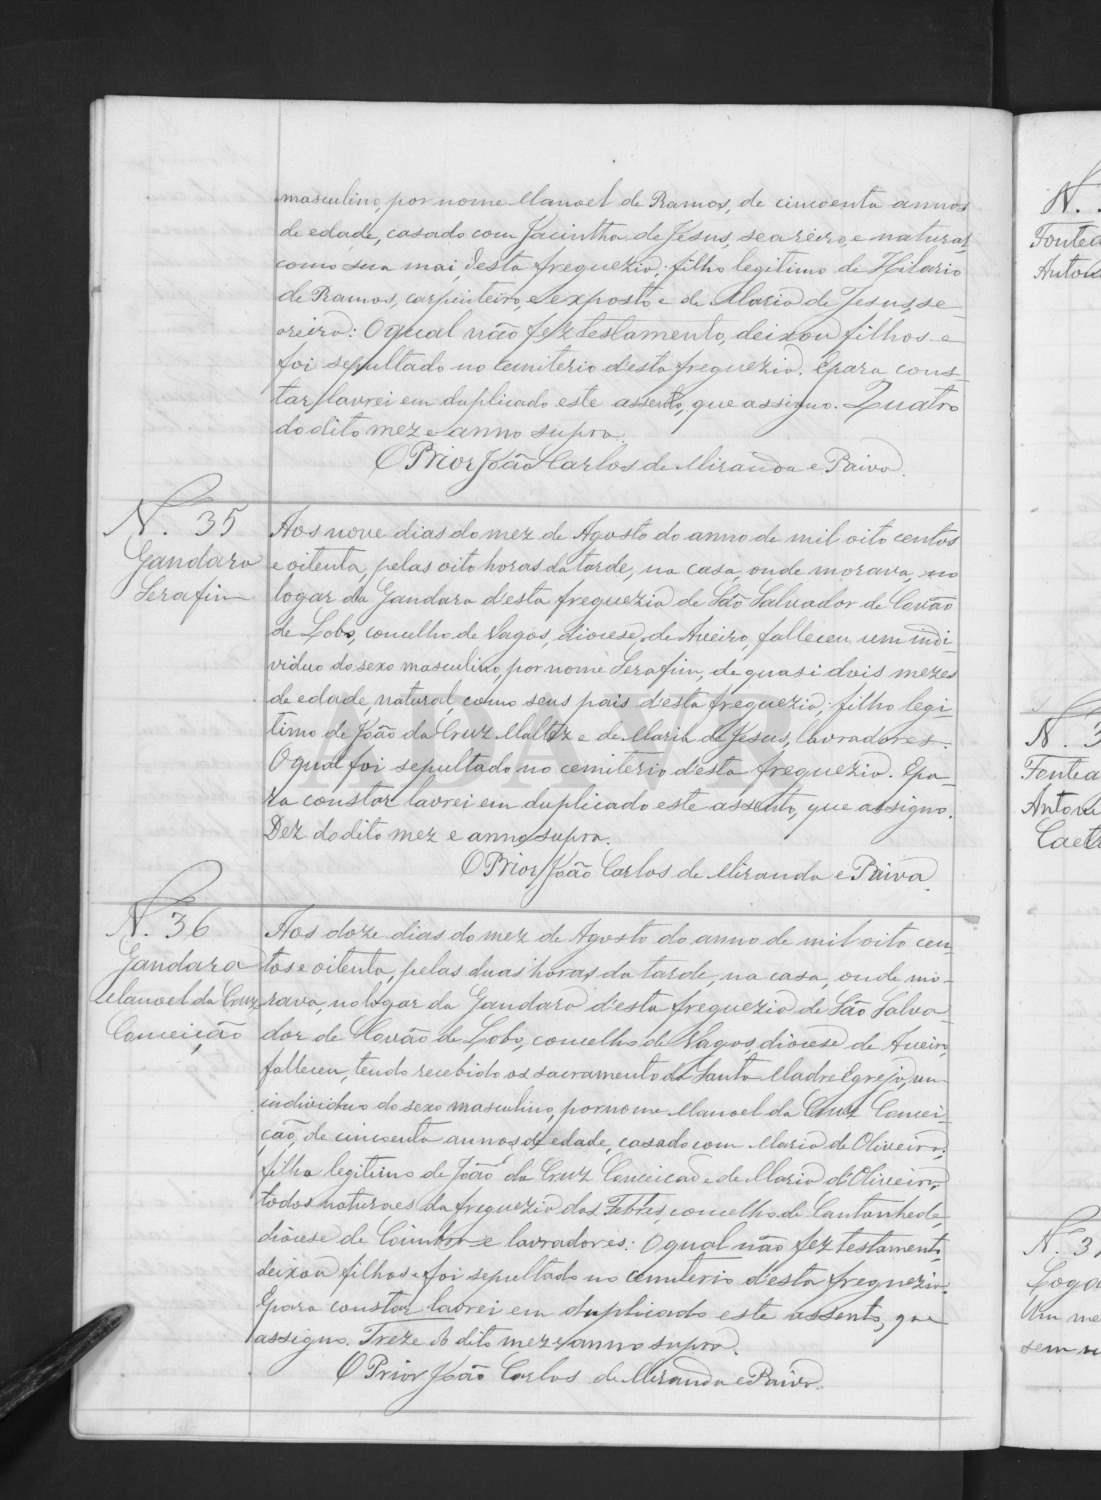 masculino, por nome Manoel de Ramos, de cincoenta annos
de edade, casado com Jacintha de Jesus, seareiro, e natural,
como sua mai, d'esta freguezia; filho legitimo de Hilario
de Ramos, carpinteiro, e exposto e de Maria de Jesus, se-
areira: O qual não fez testamento, deixou filhos e
foi sepultado no cemiterio d'esta freguezia. E para cons-
tar lavrei em duplicado este assento, que assigno. Quatro
do dito mez e anno supra.
O Prior João Carlos de Miranda e Paiva.
N. 35
Gandara
Serafim
Aos nove dias do mez de Agosto do anno de mil oito centos
e oitenta, pelas oito horas da tarde, na casa, onde morava, no
logar da Gandara d'esta freguezia de São Salvador de Covão
de Lobo, concelho de Vagos, diocese de Aveiro, falleceu um indi-
viduo do sexo masculino, por nome Serafim, de quasi dois mezes
de edade, natural, como seus pais d'esta freguezia; filho legi-
timo de João da Cruz Maltez e de Maria de Jesus, lavradores.
O qual foi sepultado no cemiterio d'esta freguezia. E pa-
ra constar lavrei em duplicado este assento, que assigno.
Dez do dito mez e anno supra.
O Prior João Carlos de Miranda e Paiva.
N. 36
Gandara
Manoel da Cruz
Conceição
Aos doze dias do mez de Agosto do anno de mil oito cen-
tos e oitenta, pelas duas horas da tarde, na casa, onde mo-
rava, no logar da Gandara d'esta freguezia de São Salva-
dor de Covão de Lobo, concelho de Vagos, diocese de Aveiro,
falleceu, tendo recebido os sacramento da Santa Madre Egreja, um
individuo do sexo masculino, por nome Manoel da Cruz Concei-
ção, de cincoenta annos de edade, casado com Maria de Oliveira,
filho legitimo de João da Cruz Conceicão e de Maria d'Oliveira,
todos naturaes da freguezia das Febres, concelho de Cantanhede,
diocese de Coimbra e lavradores: O qual não fez testamento,
deixou filhos e foi sepultado no cemiterio d'esta freguezia.
E para constar lavrei em duplicado este assento, que
assigno. Treze do dito mez e anno supra.
O Prior João Carlos de Miranda e Paiva.
ADAVR
N.
N. 3
N. 3